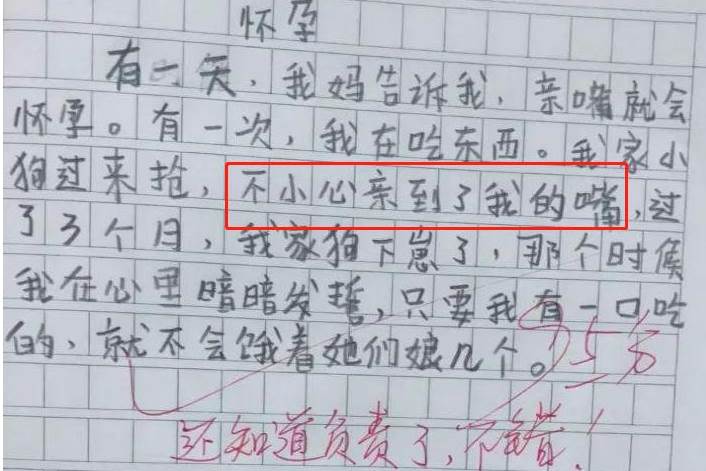 怀孕
有一天，我妈告诉我，亲嘴就会
怀孕。有一次，我在吃东西。我家小
狗过来抢，不小心亲到了我的嘴，过
了3个月，我家狗下崽了，那个时候
我在心里暗暗发誓，只要我有一口吃
的，就不会饿着她们娘几个。
95分
还知道负责了，不错！